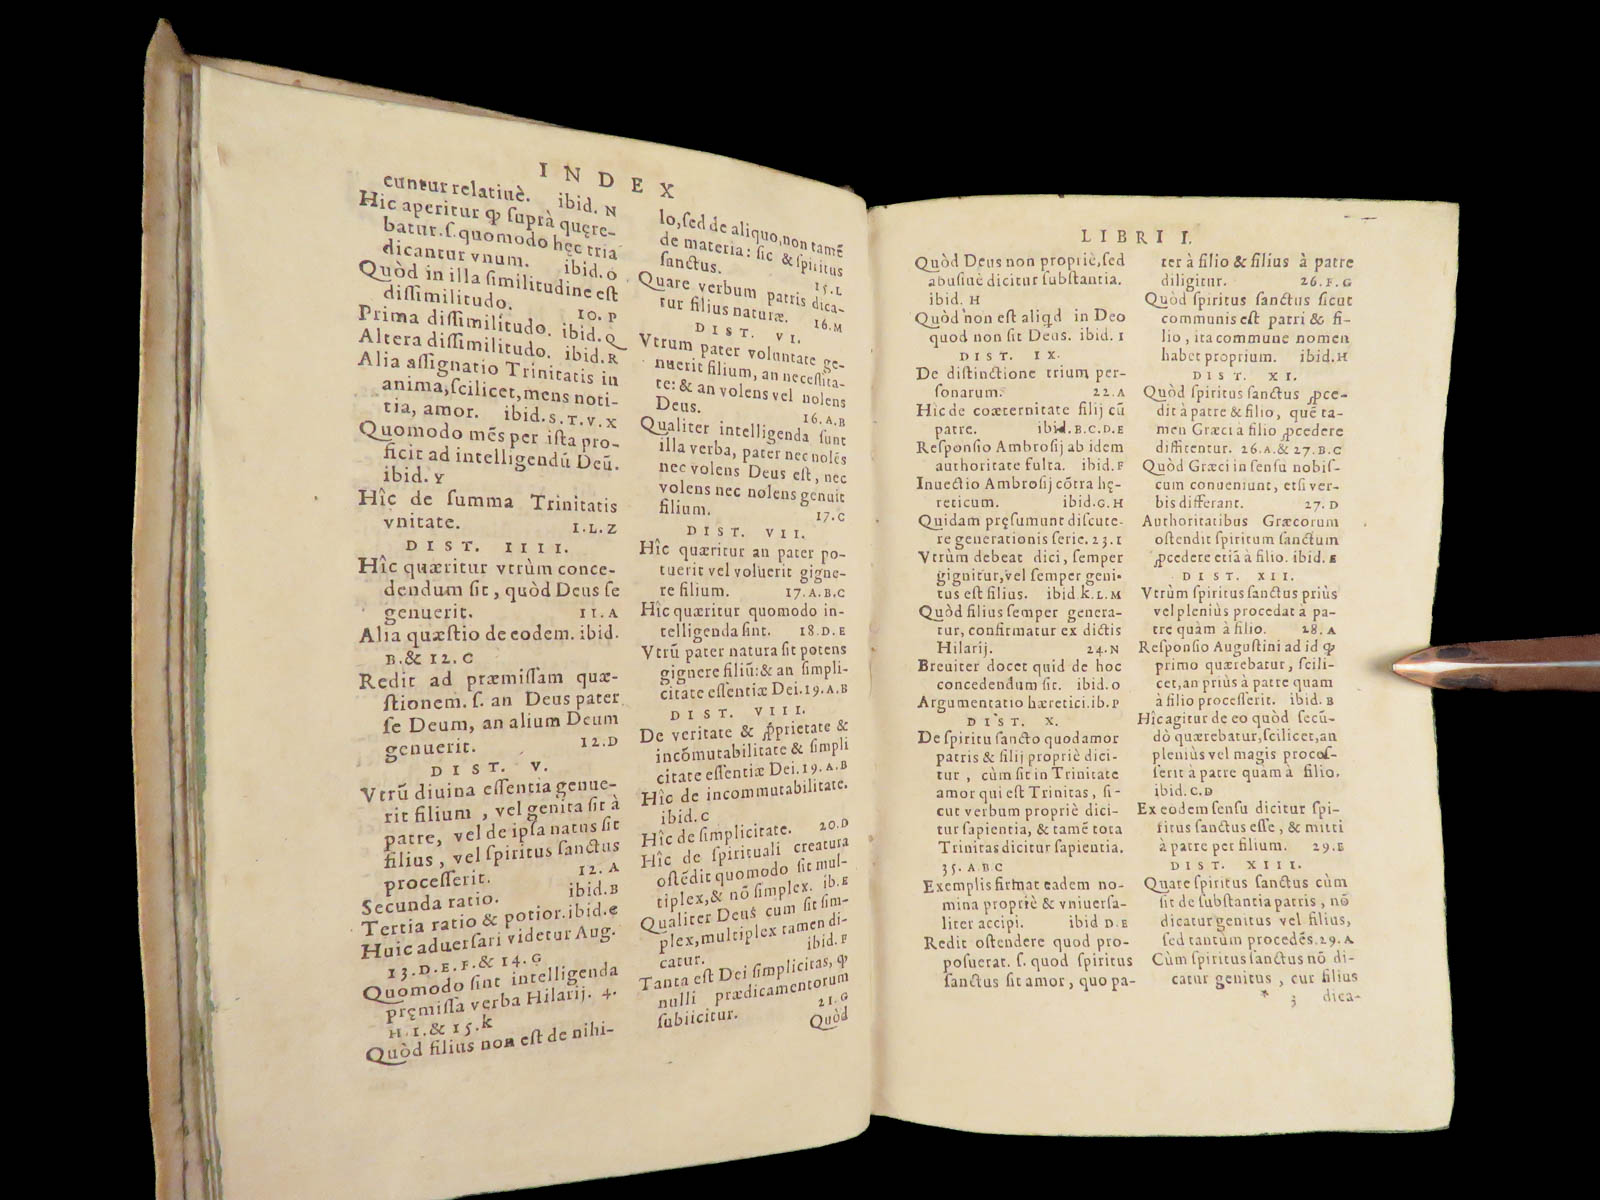 INDEX
cuntur relatiuè. ibid. N
Hic aperitur ꝙ suprà quęre-
batur. s. quomodo hęc tria
dicantur vnum. ibid. O
Quòd in illa similitudine est
dissimilitudo. 10. P
Prima dissimilitudo. ibid. Q
Altera dissimilitudo. ibid. R
Alia assignatio Trinitatis in
anima, scilicet, mens noti-
tia, amor. ibid. S. T. V. X
Quomodo mẽs per ista pro-
ficit ad intelligendũ Deũ.
ibid. Y
Hîc de summa Trinitatis
vnitate. I. L. Z
DIST. IIII.
Hîc quæritur vtrùm conce-
dendum sit, quòd Deus se
genuerit. 11. A
Alia quæstio de eodem. ibid.
B. & 12. C
Redit ad præmissam quæ-
stionem. s. an Deus pater
se Deum, an alium Deum
genuerit. 12. D
DIST. V.
Vtrũ diuina essentia genue-
rit filium, vel genita sit à
patre, vel de ipsa natus sit
filius, vel spiritus sanctus
processerit. 12. A
Secunda ratio. ibid. B
Tertia ratio & potior. ibid. e
Huic aduersari videtur Aug.
13. D. E. F. & 14. G
Quomodo sint intelligenda
pręmissa verba Hilarij. 4.
H. I. & 15. k
Quòd filius non est de nihi-
lo, sed de aliquo, non tamẽ
de materia: sic & spiritus
sanctus. 15. L
Quare verbum patris dica-
tur filius naturæ. 16. M
DIST. VI.
Vtrum pater voluntate ge-
nuerit filium, an necessita-
te: & an volens vel nolens
Deus. 16. A. B
Qualiter intelligenda sunt
illa verba, pater nec nolẽs
nec volens Deus est, nec
volens nec nolens genuit
filium. 17. C
DIST. VII.
Hîc quæritur an pater po-
tuerit vel voluerit gigne-
re filium. 17. A. B. C
Hîc quæritur quomodo in-
telligenda sint. 18. D. E
Vtrũ pater natura sit potens
gignere filiũ: & an simpli-
citate essentiæ Dei. 19. A. B
DIST. VIII.
De veritate & ꝓprietate &
incõmutabilitate & simpli
citate essentiæ Dei. 19. A. B
Hîc de incommutabilitate.
ibid. C
Hîc de simplicitate. 20. D
Hîc de spirituali creatura
ostẽdit quomodo sit mul-
tiplex, & nõ simplex. ib. E
Qualiter Deus cum sit sim-
plex, multiplex tamen di-
catur. ibid. F
Tanta est Dei simplicitas, ꝙ
nulli prædicamentorum
subiicitur. 21. G
Quòd
LIBRI I.
Quòd Deus non propriè, sed
abusiuè dicitur substantia.
ibid. H
Quòd non est aliqd in Deo
quod non sit Deus. ibid. I
DIST. IX.
De distinctione trium per-
sonarum. 22. A
Hîc de coæternitate filij cũ
patre. ibid. B. C. D. E
Responsio Ambrosij ab idem
authoritate fulta. ibid. F
Inuectio Ambrosij cõtra hę-
reticum. ibid. G. H
Quidam pręsumunt discute-
re generationis serie. 23. I
Vtrùm debeat dici, semper
gignitur, vel semper geni-
tus est filius. ibid k. L. M
Quòd filius semper genera-
tur, confirmatur ex dictis
Hilarij. 24. N
Breuiter docet quid de hoc
concedendum sit. ibid. O
Argumentatio hæretici. ib. P
DIST. X.
De spiritu sancto quod amor
patris & filij propriè dici-
tur, cùm sit in Trinitate
amor qui est Trinitas, si-
cut verbum propriè dici-
tur sapientia, & tamẽ tota
Trinitas dicitur sapientia.
35. A B C
Exemplis firmat eadem no-
mina propriè & vniuersa-
liter accipi. ibid D. E
Redit ostendere quod pro-
posuerat. s. quod spiritus
sanctus sit amor, quo pa-
ter à filio & filius à patre
diligitur. 26. F. G
Quòd spiritus sanctus sicut
communis est patri & fi-
lio, ita commune nomen
habet proprium. ibid. H
DIST. XI.
Quòd spiritus sanctus ꝓce-
dit à patre & filio, quẽ ta-
men Græci à filio ꝓcedere
diffitentur. 26. A. & 27. B. C
Quòd Græci in sensu nobis-
cum conueniunt, etsi ver-
bis differant. 27. D
Authoritatibus Græcorum
ostendit spiritum sanctum
ꝓcedere etiã à filio. ibid. E
DIST. XII.
Vtrùm spiritus sanctus priùs
vel pleniùs procedat à pa-
tre quàm à filio. 28. A
Responsio Augustini ad id ꝙ
primo quærebatur, scili-
cet, an priùs à patre quam
à filio processerit. ibid. B
Hîc agitur de eo quòd secũ-
dò quærebatur, scilicet, an
pleniùs vel magis proces-
serit à patre quam à filio.
ibid. C. D
Ex eodem sensu dicitur spi-
ritus sanctus esse, & mitti
à patre per filium. 29. E
DIST. XIII.
Quare spiritus sanctus cùm
sit de substantia patris, nõ
dicatur genitus vel filius,
sed tantùm procedẽs. 29. A
Cùm spiritus sanctus nõ di-
catur genitus, cur filius
* 3 dica-